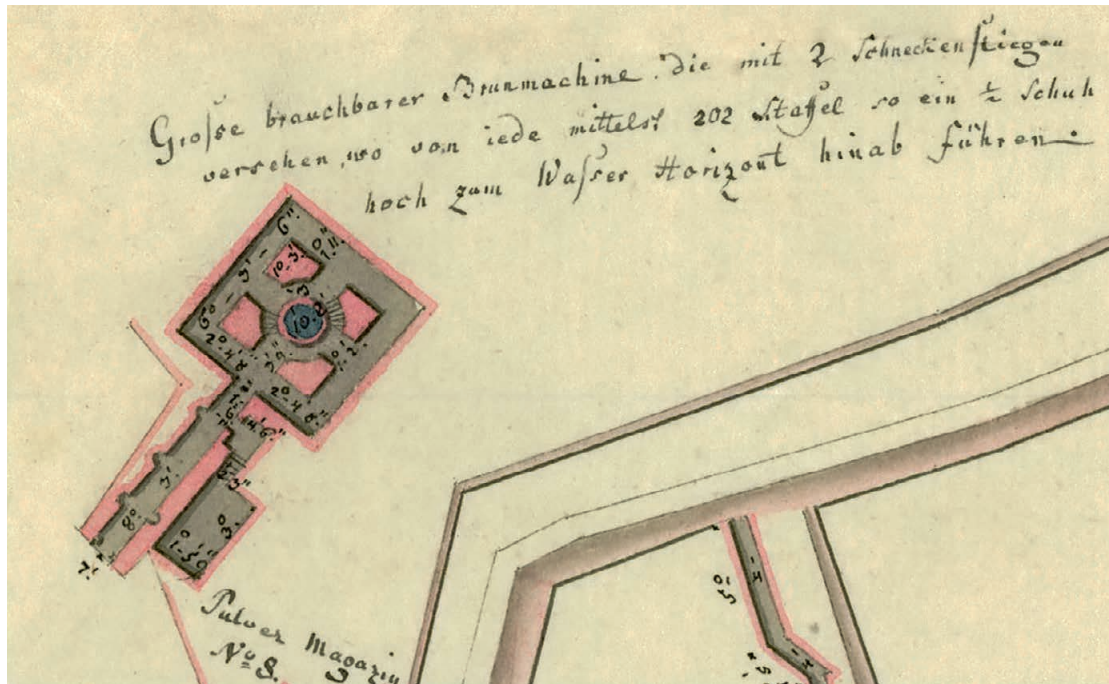 Große brauchbarer Brunmachine die mit 2 Schneckenstiegen
versehen, wo von iede mittelst 202 Staffel so ein ½ Schuh
hoch zum Waßer Horizont hinab führen.
6° - 3' - 6"
10-3'
2°-4'8"
10'
2°-4'8"
3'
8°
3°
7'
Pulver Magazin
No 8.
5°
4'
4'